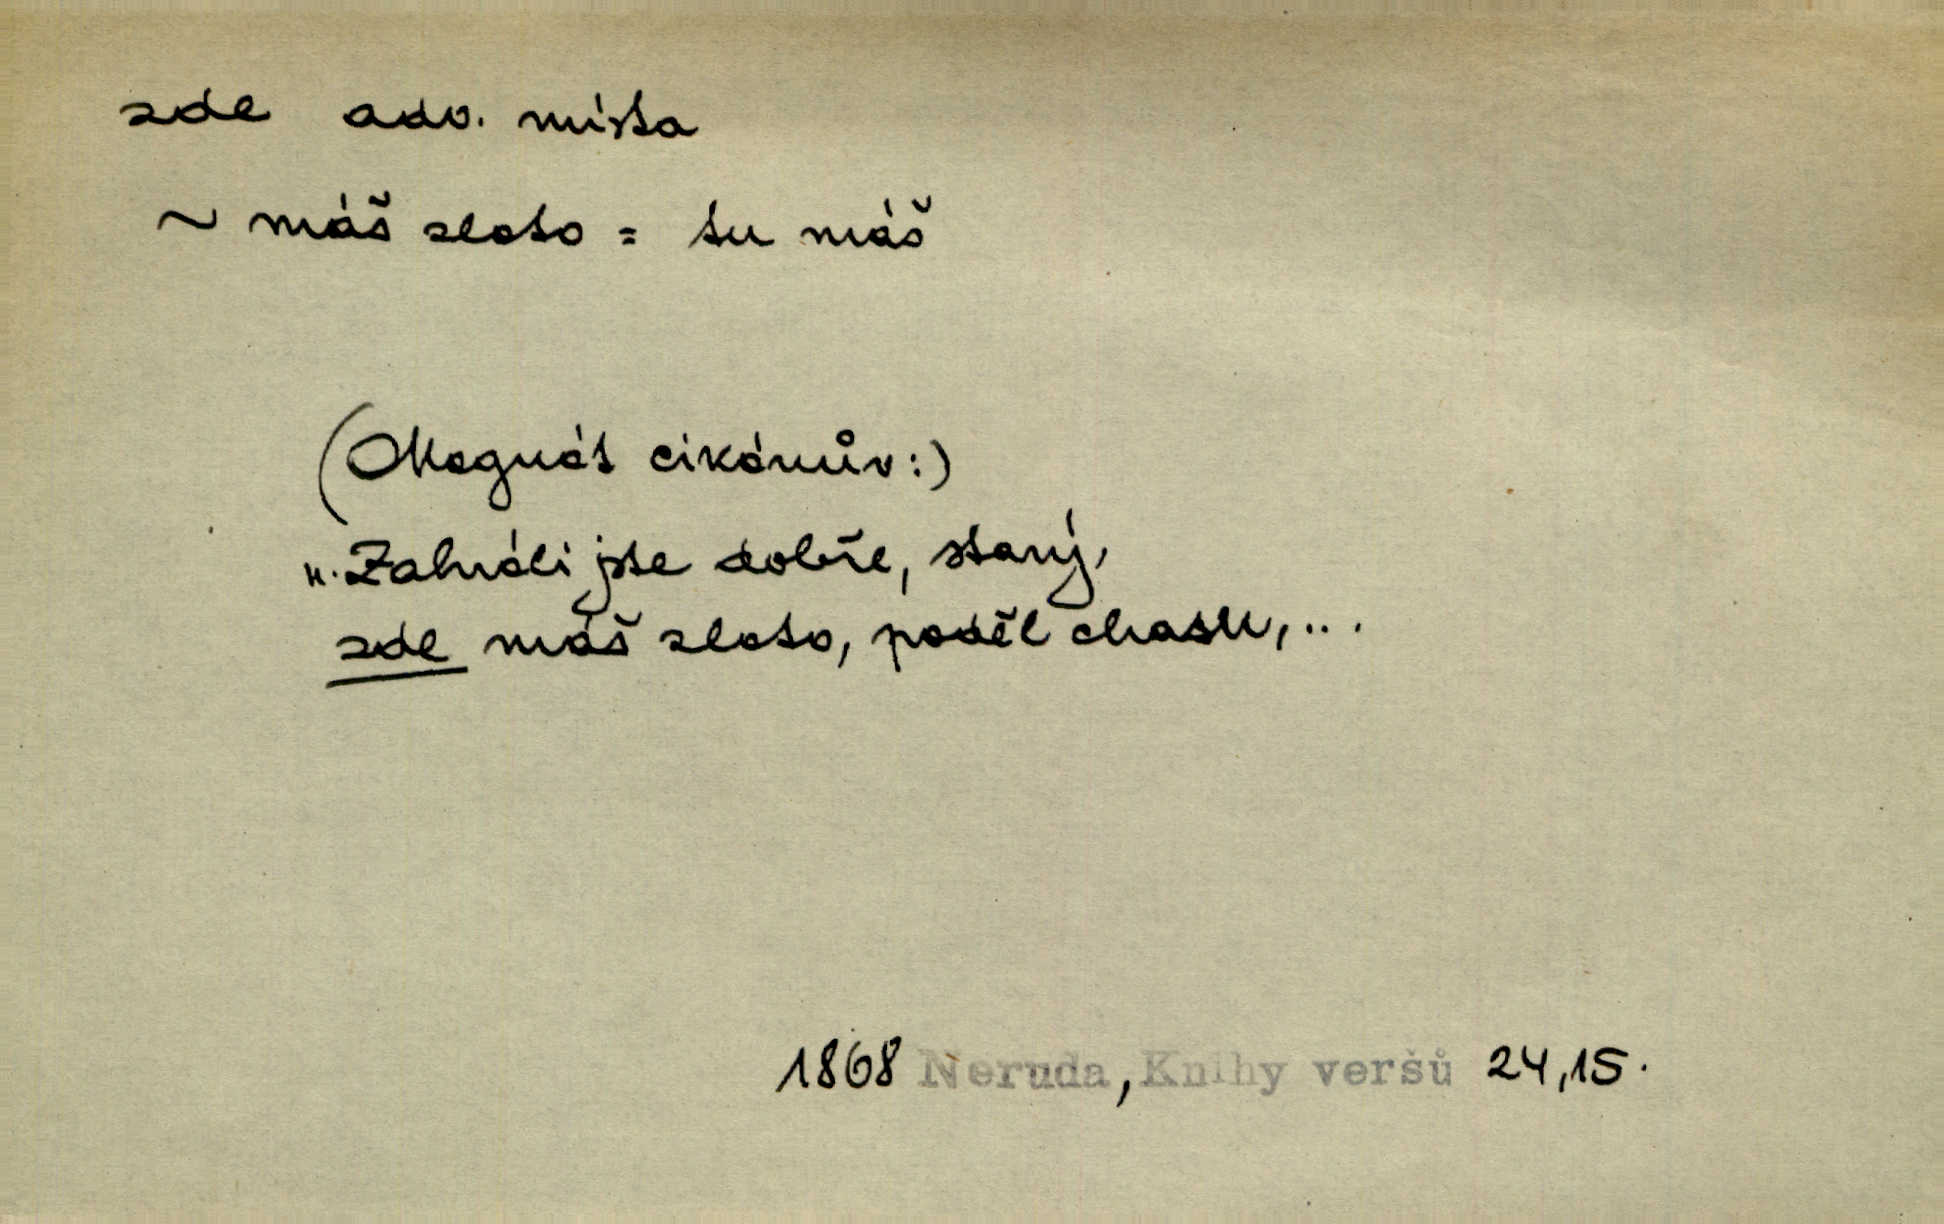 zde adv. místa
~ máš zlato = tu máš
(Magnát cikánův:)
„Zahráli jste dobře, starý,
zde máš zlato, poděl chasu,...
1868 Neruda, Knihy veršů 24,15.